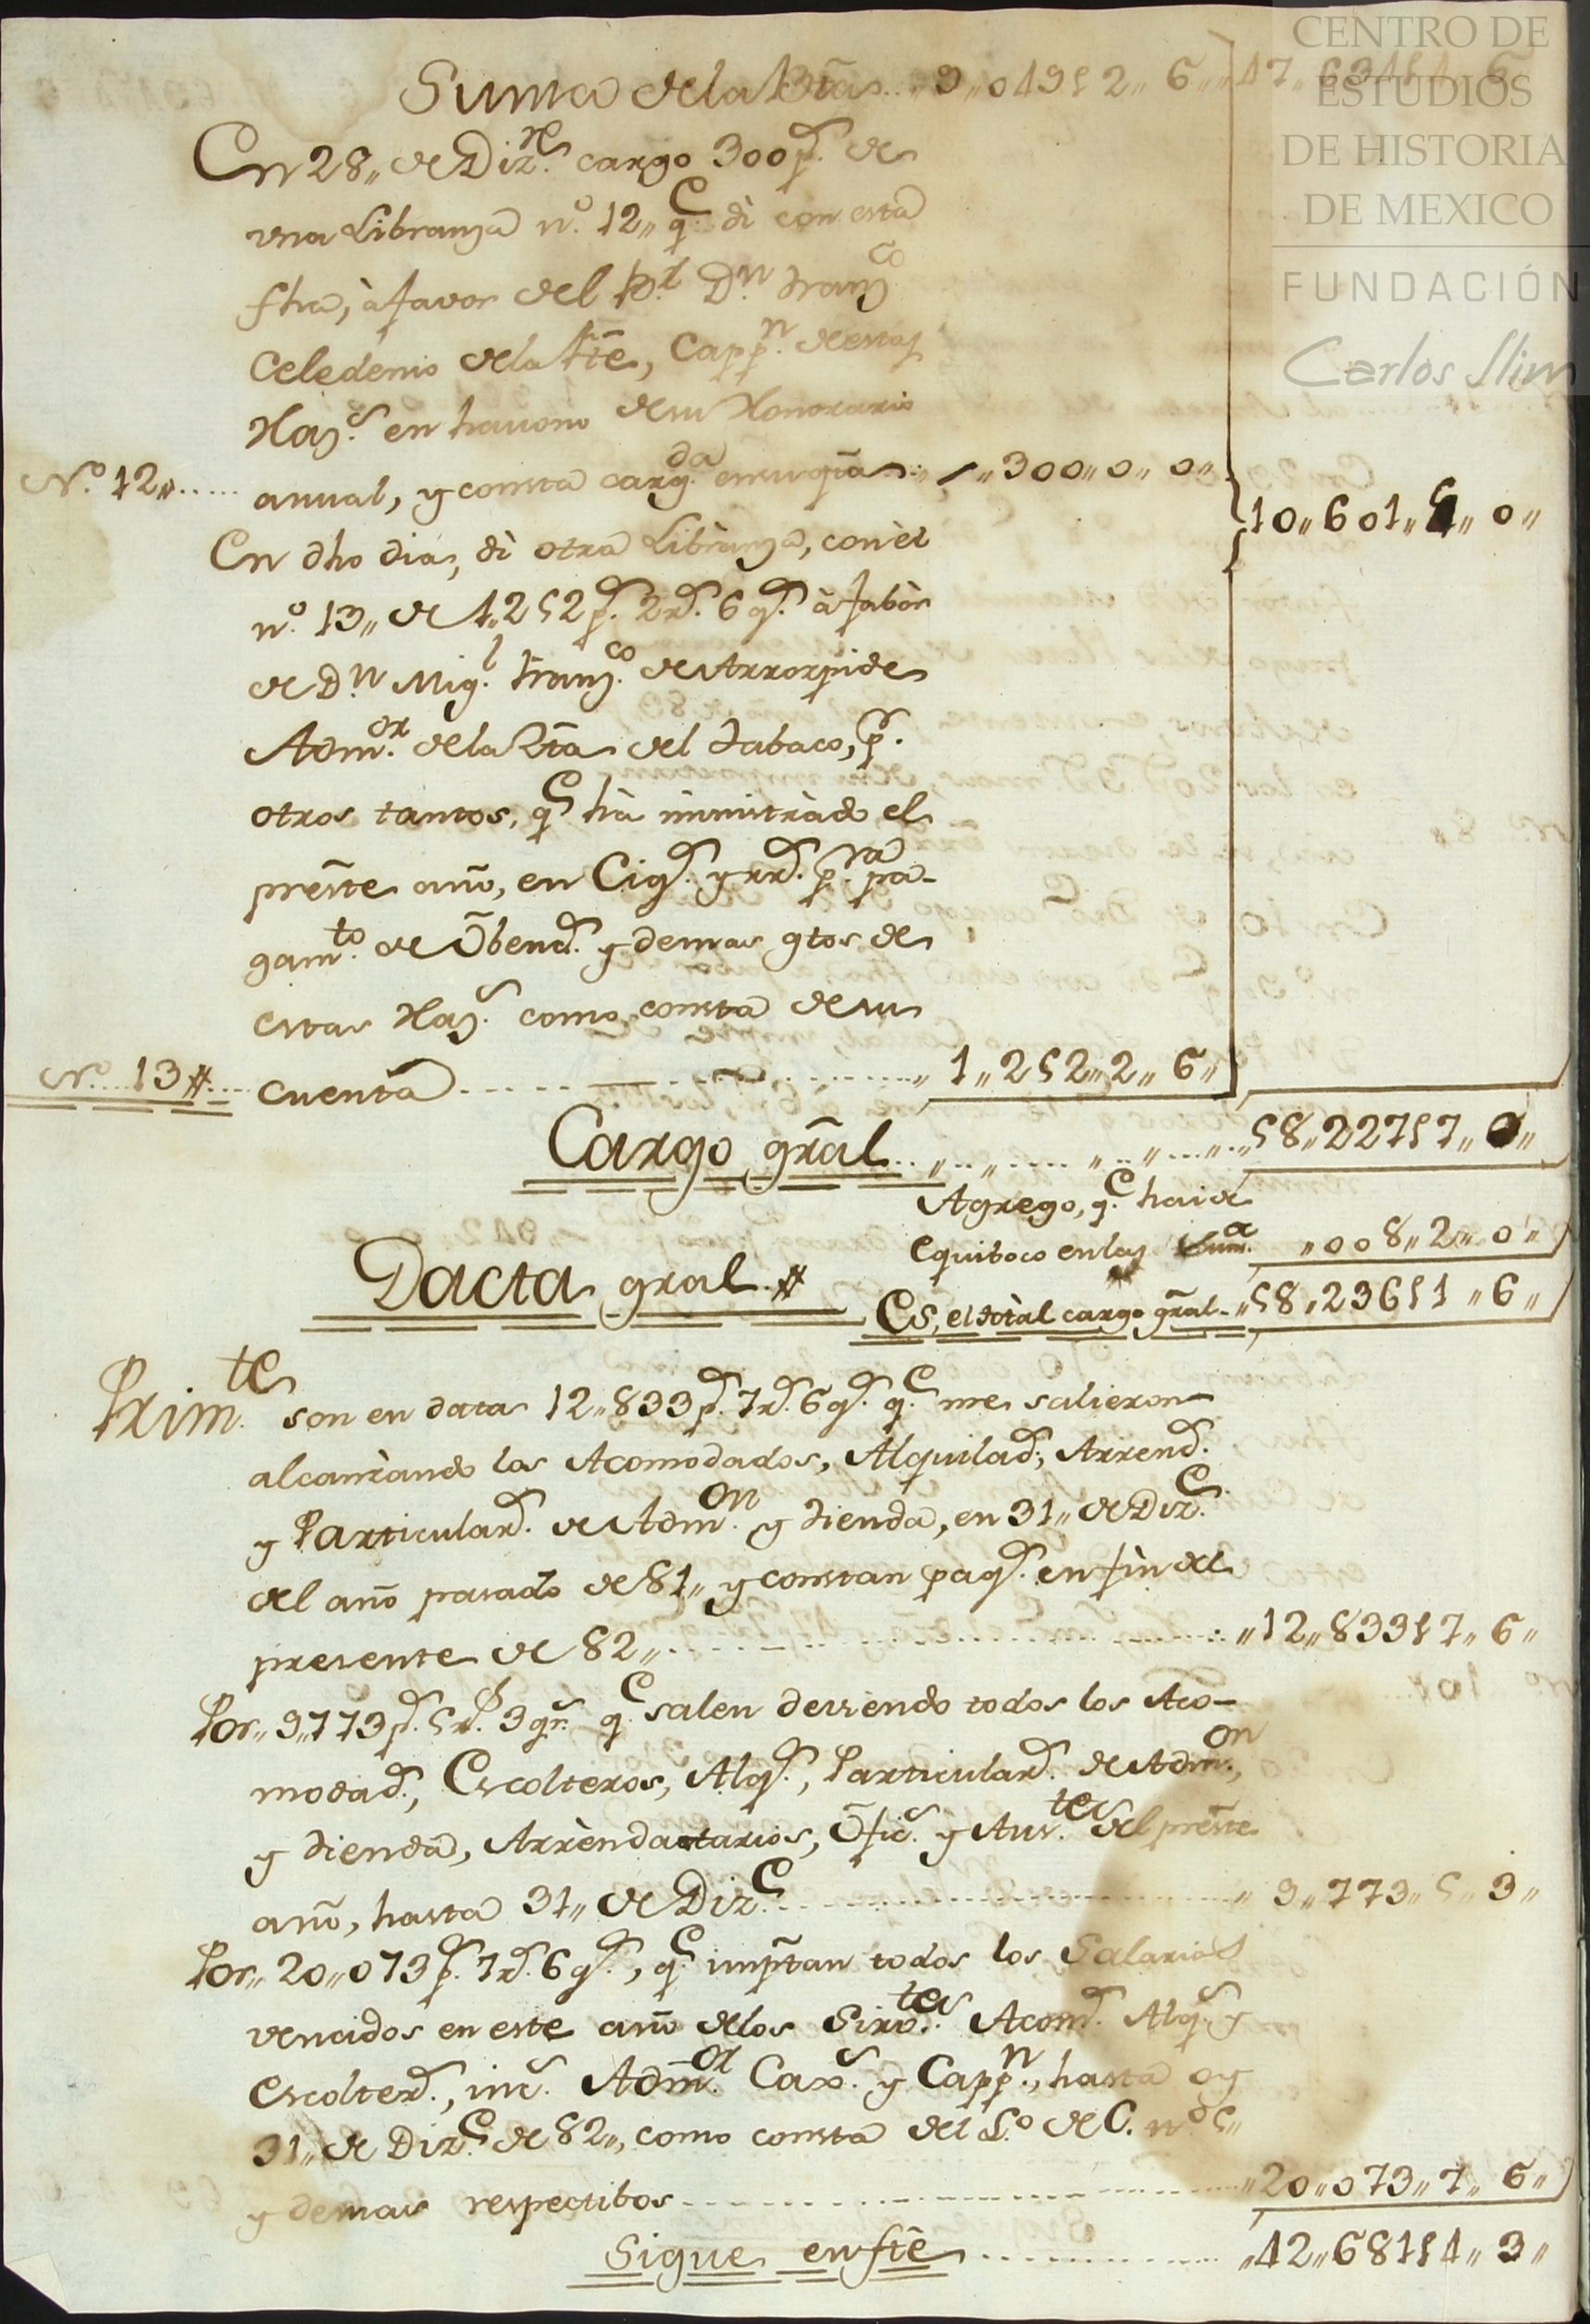 CENTRO DE
ESTUDIOS
DE HISTORIA
DE MEXICO
FUNDACIÓN
Carlos Slim
Suma dela Bta. 9,,0495 2,, 6,, 47,, 6
En 28,, de Diz.re cargo 300 p.s de
una Libranza n.o 12,, q.e di con esta
fha, à favor del B.r D.n Fran.co
Celedonio dela Fte, Capp.n de estas
Haz.s en havono de su Honorario
N.o 12,, anual, y consta carg.da en su qta ,, 300,, 0,, 0,,
10,, 601,, 4,, 0,,
En dho dia, di otra Libranza, con el
n.o 13,, de 1,,252 p.s 2 r.s 6 g.s à fabor
de D.n Mig.l Fran.co de Arrorpide
Adm.or dela Rta del tabaco, p.r
otros tantos, q.e hà ministrado el
preste año, en Cig.s y rr.s p.ra pa-
gam.to de Obenc.s y demas gtos de
estas Haz.s como consta de su
N.o 13 # cuenta ,, 1,, 252,, 2,, 6,,
Cargo gral ,, 58,, 22757,, 0,,
Agrego, q.e havia
equiboco en las Sum.a ,, 008,, 2,, 0,,
Es, el total cargo gral ,, 58,, 23651,, 6,,
Dacta gral #
Prim.te son en data 12,,833 p.s 7 r.s 6 g.s q.e me salieron
alcanzando los Acomodados, Alquilad.s, Arrend.s
y Particular.s de Adm.on y tienda, en 31,, de Diz.e
del año pasado de 81,, y constan pag.s en fin del
presente de 82,, ,,12,, 83357,, 6,,
Por,, 9,,773 p.s 5 r.s 3 gr.s q.e salen deviendo todos los Aco-
modad.s, Escolteros, Alq.s, Particular.s de Adm.on,
y tienda, Arrendatarios, Ofic.s y Aus.tes del preste
año, hasta 31,, de Diz.e ,, 9,, 773,, 5,, 3,,
Por,, 20,,073 p.s 7 r.s 6 g.s, q.e imptan todos los Salarios
vencidos en este año delos Sirv.tes Acom.s Alq.s y
Escolter.s, inc.s Adm.or Cax.s y Capp.n, hasta oy
31,, de Diz.e de 82,, como consta del L.o de C. n.o 5,,
y demas respectibos ,, 20,, 073,, 7,, 6,,
Sigue enfte ,, 42,, 68154,, 3,,